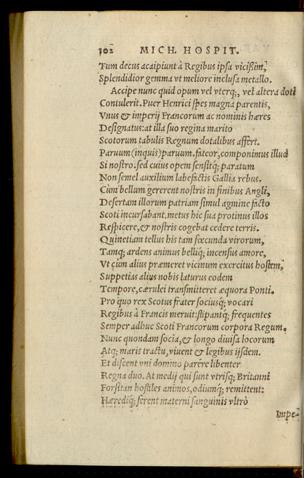 302 MICH. HOSPIT.
Tum decus accipiunt à Regibus ipsa vicißim,
Splendidior gemma vt meliore inclusa metallo.
Accipe nunc quid opum vel vterq;, vel altera doti
Contulerit. Puer Henrici spes magna parentis,
Vnus & imperij Francorum ac nominis hæres
Designatus: at illa suo regina marito
Scotorum tabulis Regnum dotalibus affert.
Paruum (inquis) paruum. fateor, componimus illud
Si nostro. sed cuius opem sensitq; paratum
Non semel auxilium labefactis Gallia rebus.
Cùm bellum gererent nostris in finibus Angli,
Desertam illorum patriam simul agmine facto
Scoti incursabant. metus hic sua protinus illos
Respicere, & nostris cogebat cedere terris.
Quinetiam tellus his tam fœcunda virorum,
Tamq; ardens animus belliq; incensus amore,
Vt cùm alius præmeret vicinum exercitus hostem,
Suppetias alius nobis laturus eodem
Tempore, cærulei transmitteret æquora Ponti.
Pro quo rex Scotus frater sociusq; vocari
Regibus à Francis meruit: stipantq; frequentes
Semper adhuc Scoti Francorum corpora Regum.
Nunc quondam socia, & longo diuisa locorum
Atq; maris tractu, viuent & legibus ijsdem.
Et discent vni domino parêre libenter
Regna duo. At medij qui sunt vtrisq; Britanni
Forsitan hostiles animos, odiumq; remittent:
Hæredíq; ferent materni sanguinis vltrò
Impe-